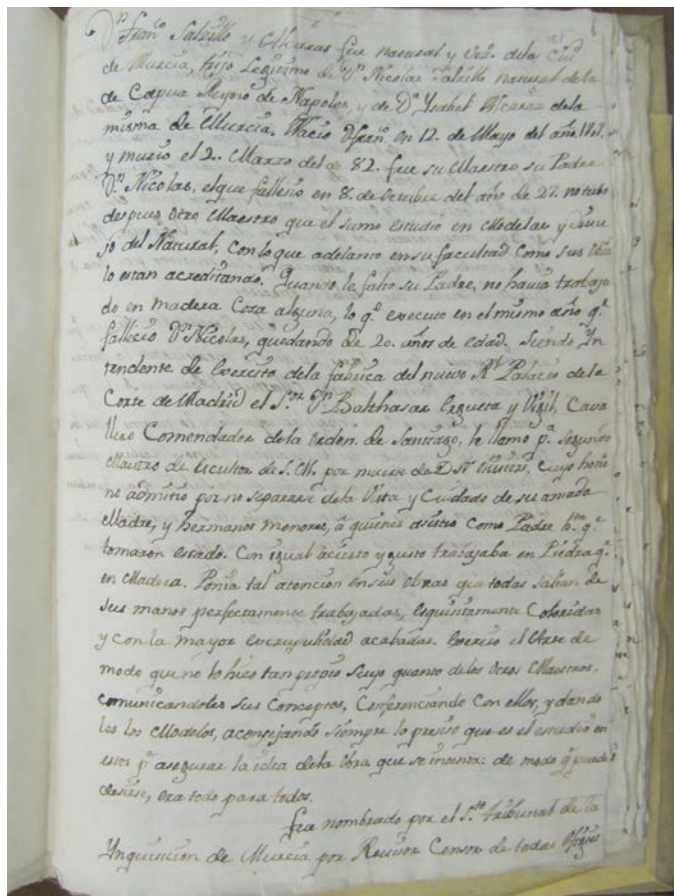 Dn. Franco. Salzillo y Alcaraz fue natural y Vezo. dela Ciud
de Murcia, hijo Legitimo de Dn. Nicolas Salzillo natural dela
de Capua Reyno de Napoles, y de Da. Ysabel Alcaraz dela
misma de Murcia. Nacio Dn. Fran. en 12. de Mayo del año. 1707.
y murio el 2. Marzo del de 82. fue su Maestro su Padre
Dn. Nicolas, el que fallesio en 8. de Octubre del año de 27. no tubo
despues otro Maestro que el sumo estudio en Modelar y
jo del Natural, con lo que adelanto en su facultad como sus Obras
lo estan acreditando. Quando le falto su Padre, no havia trabaja
do en madera Cosa alguna, lo qe. executo en el mismo año qe.
fallecio Dn. Nicolas, quedando de 20. años de edad. Siendo Yn
tendente de Exercito dela fabrica del nuevo Rl. Palacio de la
Corte de Madrid el S.or Dn. Balthasar Elgueta y Vigil, Cava
llero Comendador dela orden de Santiago, le llamo pa. segundo
Maestro de Escultor de S. M. por muerte de Cuyo hono
no admitio por no separarse dela Vista y Cuidado de su amada
Madre, y hermanos menores, a quienes asistio como Padre hta. qe.
tomaron estado. Con igual acierto y gusto trabajaba en Piedra qe.
en Madera. Ponia tal atencion en sus obras que todas salian de
sus manos perfectamente trabajadas, esquintamente Coloridas
y con la mayor escrupulicidad acabadas. Exercio el Arte de
modo que no lo hizo tan propio suyo quanto delos otros Maestros,
comunicandoles sus Conceptos, Conferenciando Con ellos, y dando
les los Modelos, aconsejando siempre lo preciso que es el estudio en
estos pa. asegurar la idea dela obra que se intenta: de modo qe. puede
desirse, era todo para todos.
fue nombrado por el S.to Tribunal de la
Ynquisicion de Murcia por Revisor Censor de todas